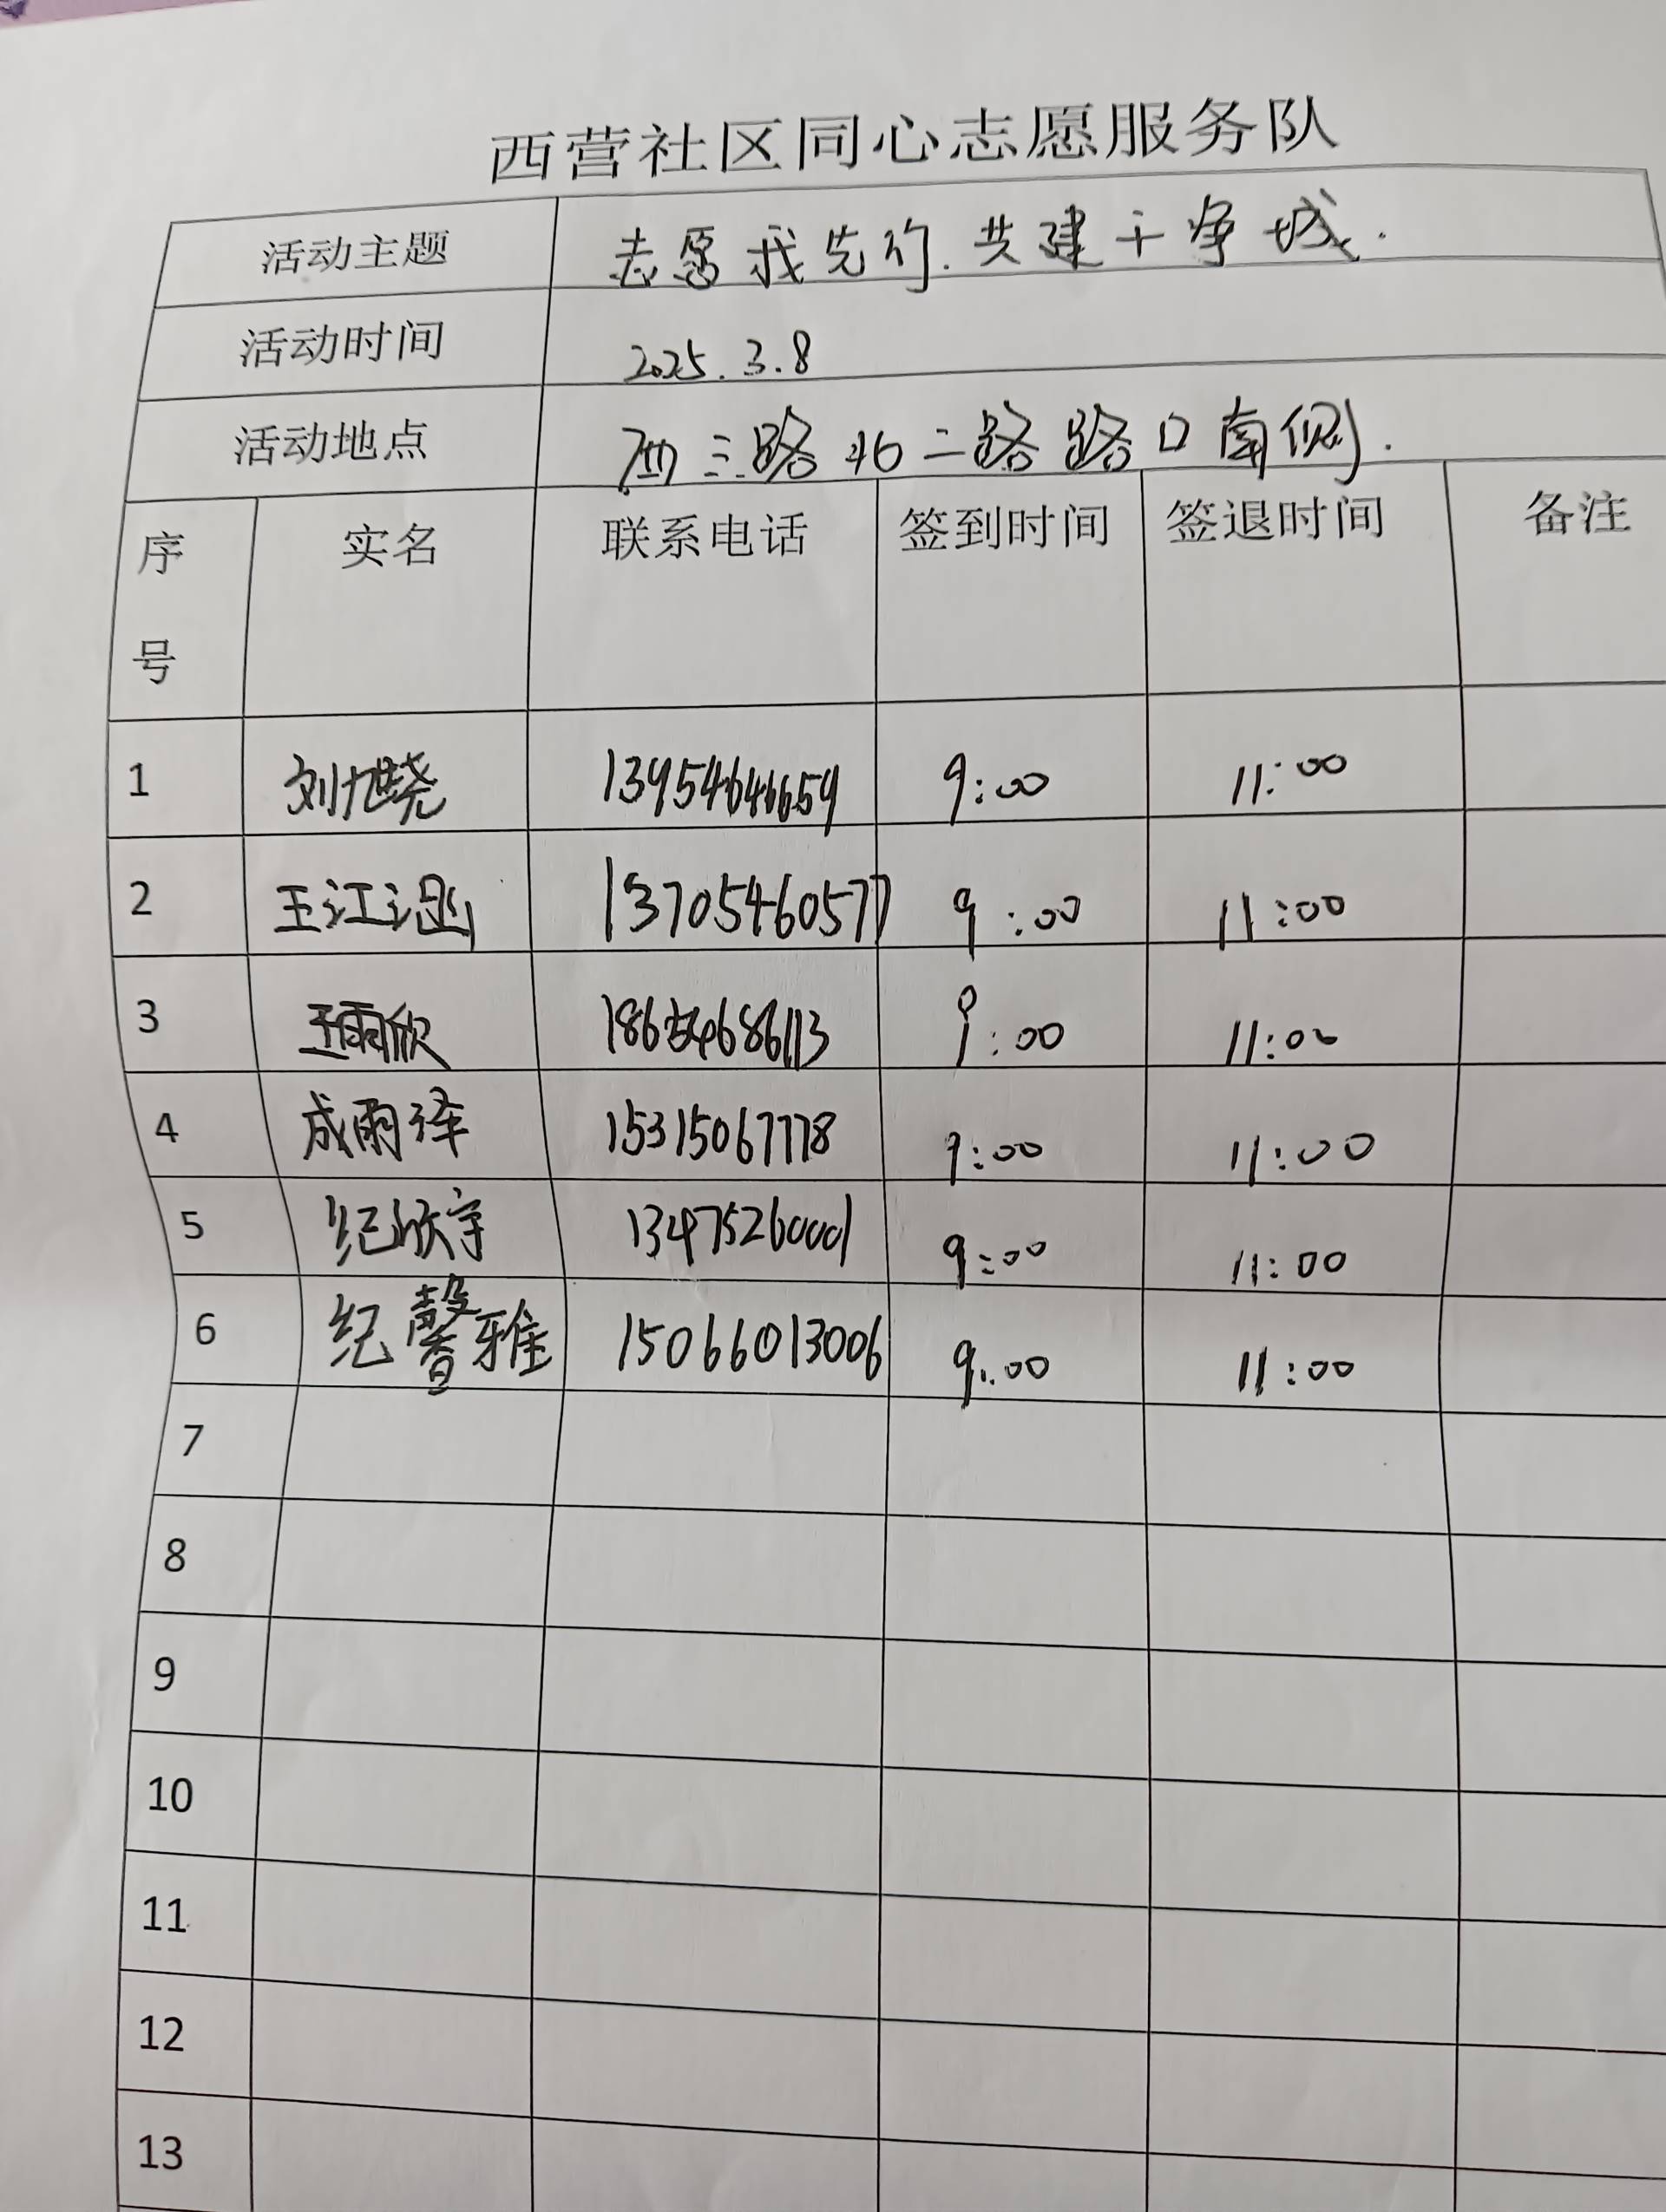 西营社区同心志愿服务队
活动主题 志愿我先行.共建干净城.
活动时间 2025.3.8
活动地点 西三路北二路路口南侧.
序号 实名 联系电话 签到时间 签退时间 备注
1 刘旭晓 13954646659 9:00 11:00
2 王江涵 13705460577 9:00 11:00
3 王雨欣 9:00 11:00
4 成雨泽 15315067778 9:00 11:00
5 纪欣宇 13475260001 9:00 11:00
6 纪馨雅 15066013006 9:00 11:00
7
8
9
10
11
12
13